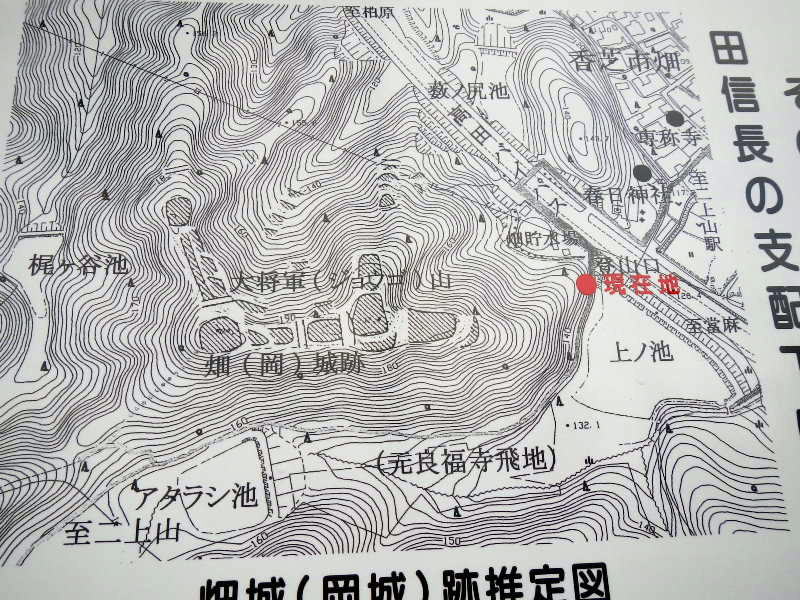 至柏原
香芝市畑
藪ノ尻池
専称寺
春日神社
至二上山駅
畑貯水場
登山口
現在地
至當麻
梶ヶ谷池
大将軍(ジョウゴ)山
畑(岡)城跡
上ノ池
132.1
(元良福寺飛地)
アタラシ池
至二上山
160
160
150
140
畑城(岡城)跡推定図
田信長の支配下